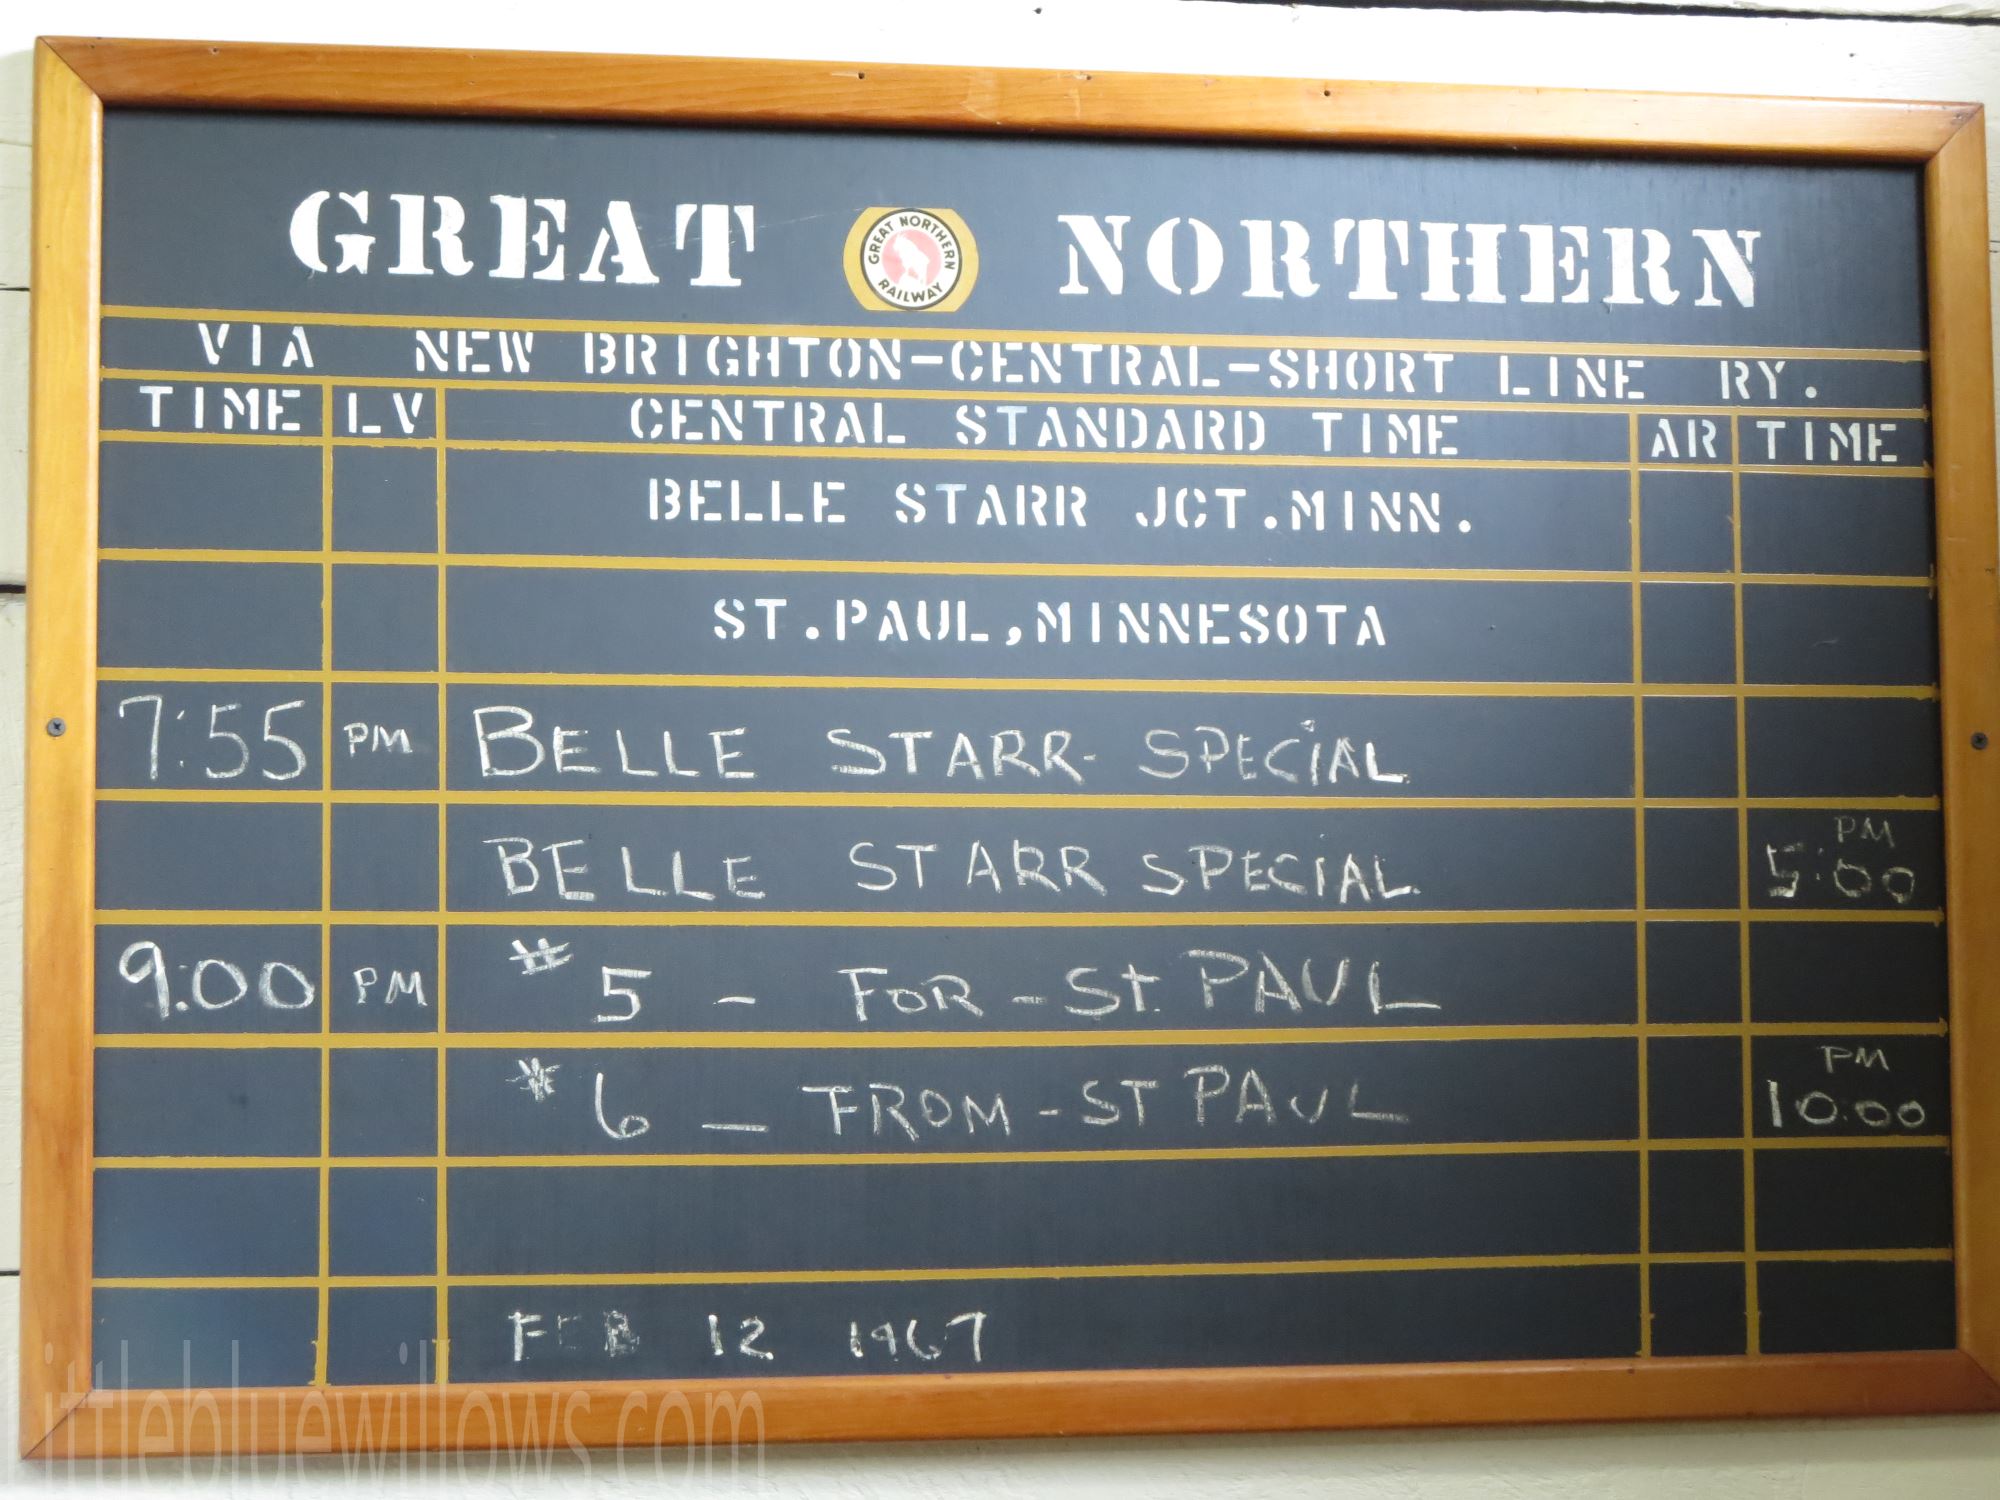 GREAT GREAT NORTHERN RAILWAY NORTHERN
VIA NEW BRIGHTON-CENTRAL-SHORT LINE RY.
TIME LV CENTRAL STANDARD TIME AR TIME
BELLE STARR JCT.MINN.
ST.PAUL,MINNESOTA
7:55 PM BELLE STARR- SPECIAL
BELLE STARR SPECIAL PM 5:00
9:00 PM # 5 - FOR - St. PAUL
# 6 - FROM - ST PAUL PM 10:00
FEB 12 1967
Littlebluewillows.com